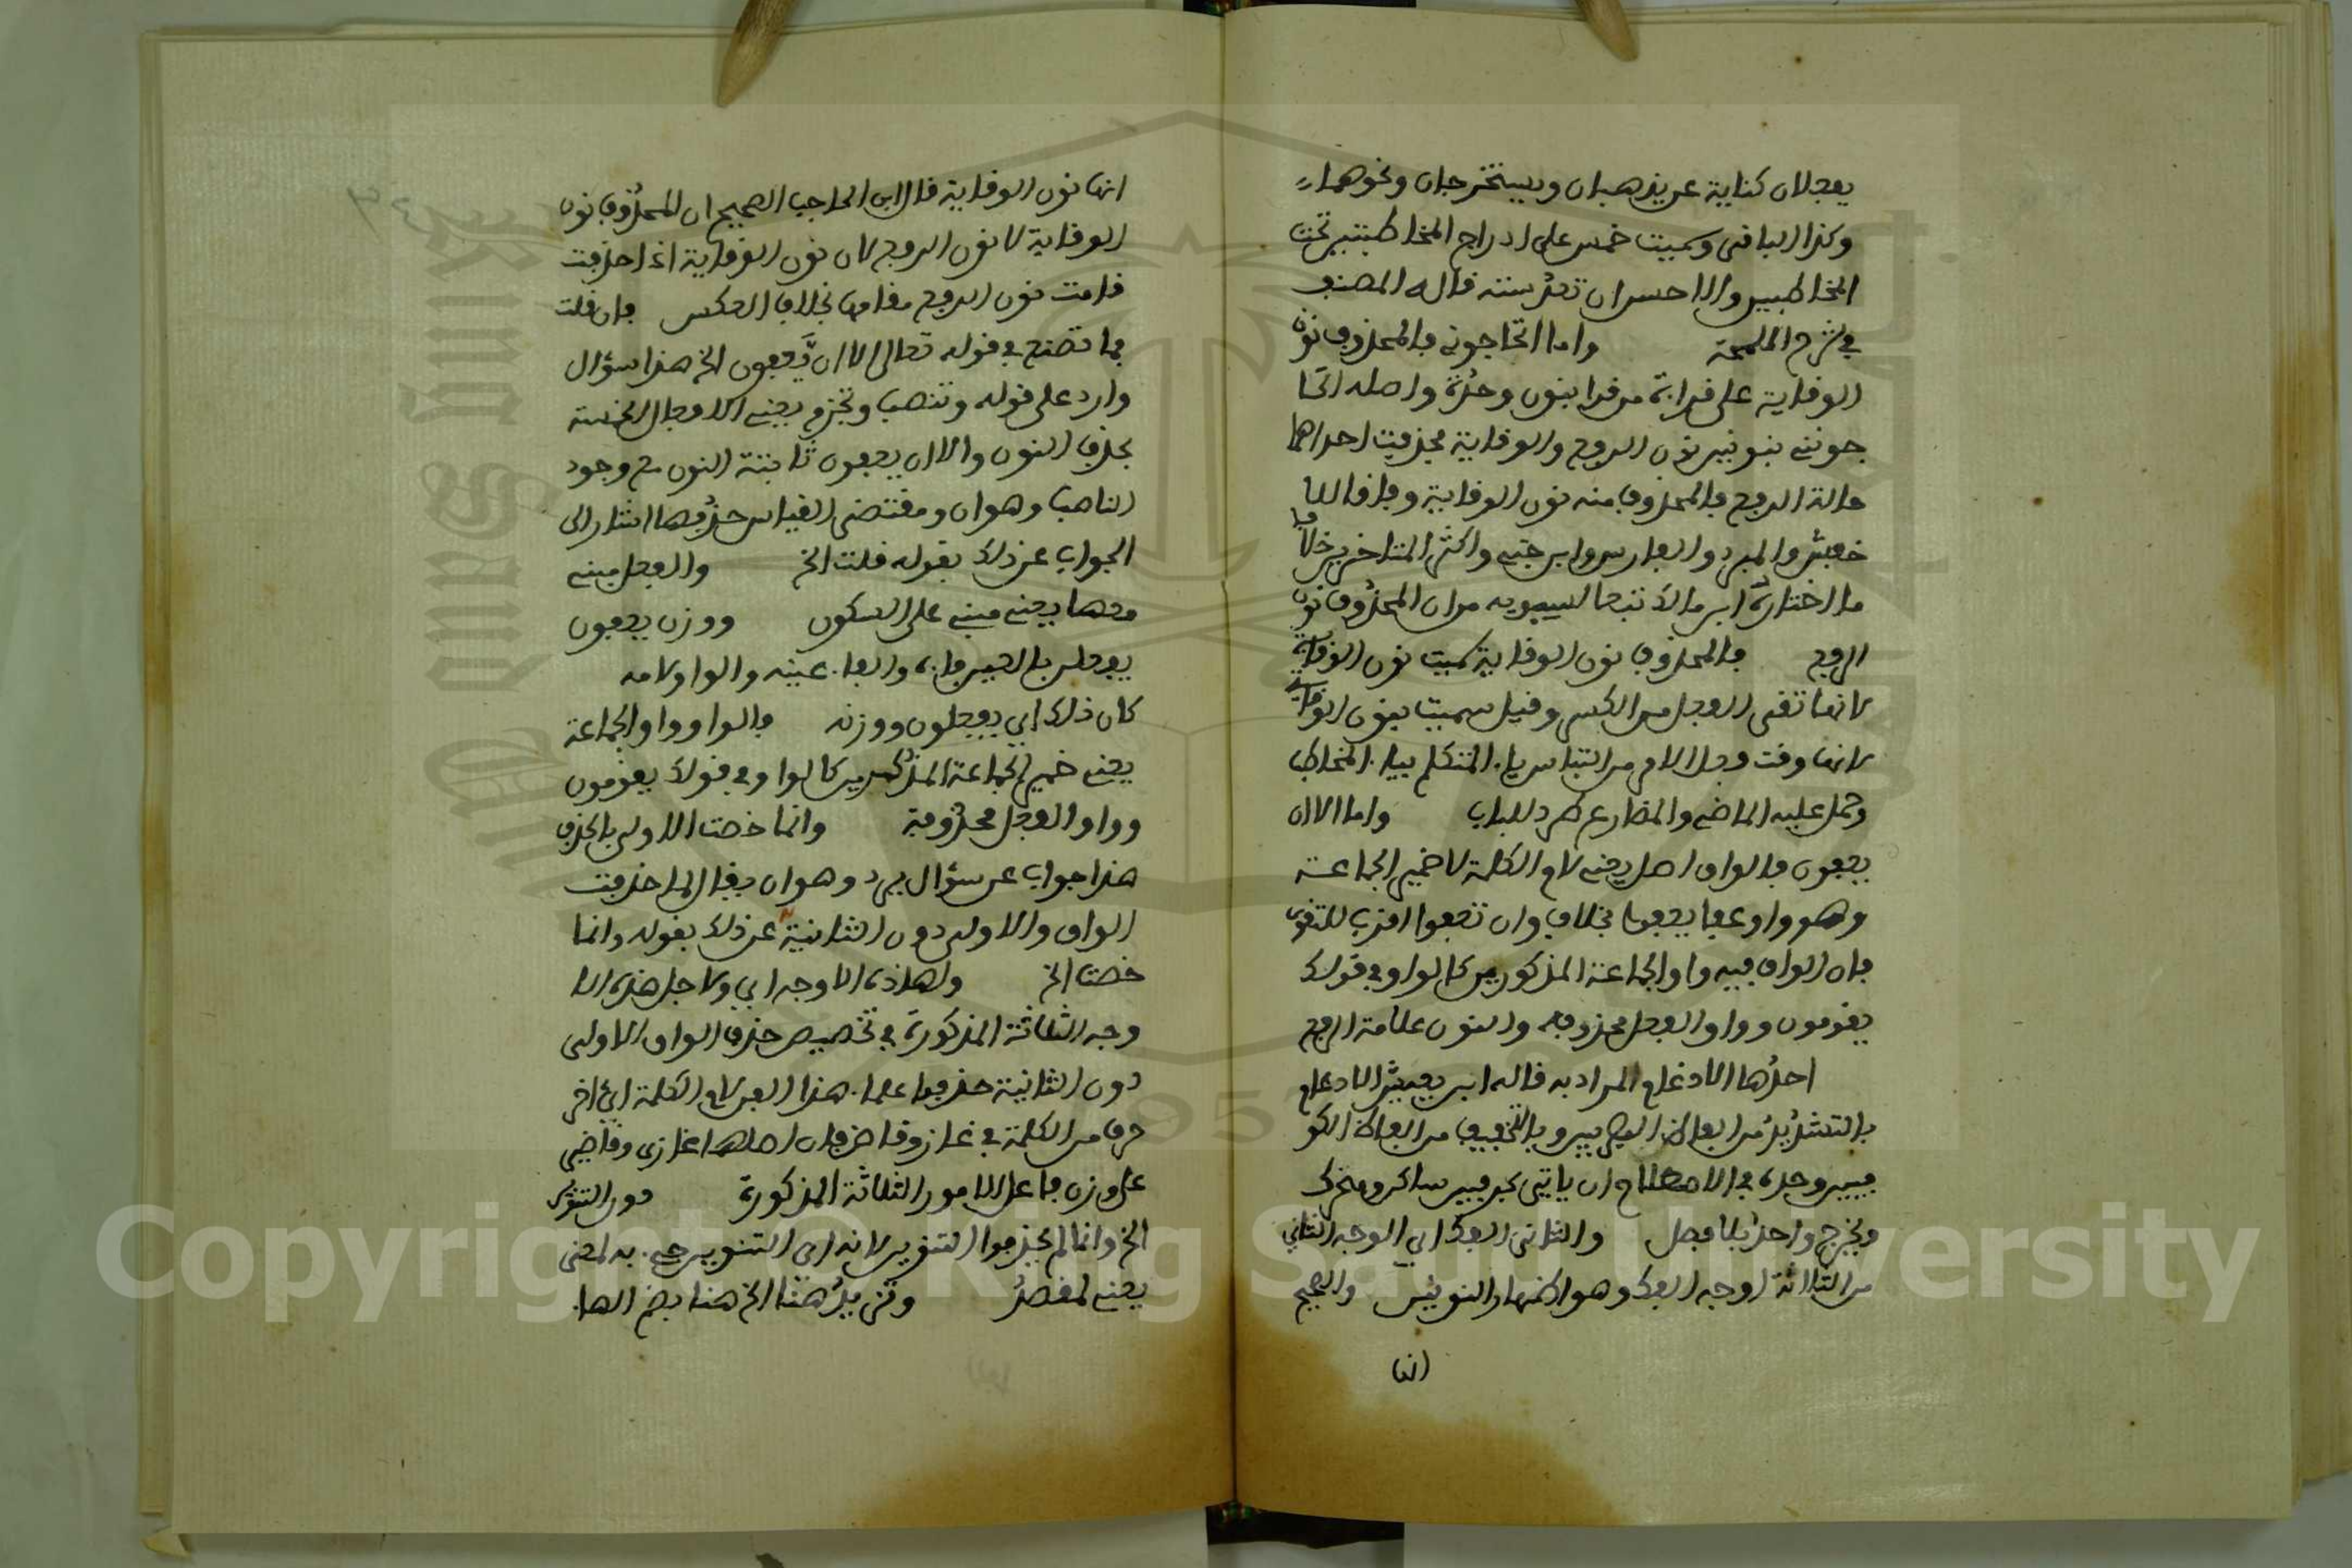 يفعلان كناية عن يذهبان ويستخرجان ونحوهما
وكذا الباقى وسميت خمس على ادراج المخاطبتين تحت
المخاطبين والاحسن ان تعد ستة قاله المصنف
في شرح اللمحة واما اتحاجونى فالمحذوف نون
الوقاية على قراءة من قرا بنون وحدة واصله اتحا
جوننى بنونين نون الرفع والوقاية فحذفت احداهما
حالة الرفع فالمحذوف منه نون الوقاية وفاقا للا
خفش والمبرد والفارس وابن جنى واكثر المتاخرين خلافا
ما اختاره ابن مالك تبعا لسيبويه من ان المحذوف نون
الرفع فالمحذوف نون الوقاية سميت نون الوقاية
لانها تقى الفعل من الكسر وقيل سميت بنون الوقاية
لانها وقت فعل الامر من التباس ياء المتكلم بياء المخاطب
وحمل عليه الماضى والمضارع طرد للباب واما الا ان
يعفون فالواو اصل يعنى لام الكلمة لا ضمير الجماعة
وهو واو عفا يعفوا بخلاف وان تعفوا اقرب للتقوى
فان الواو فيه واو الجماعة المذكورين كالواو في قولك
يقومون وواو الفعل محذوفه والنون علامة الرفع
احدها الادغام المراد به قاله ابن يعيش الادغام
بالتشديد من الفاظ البصريين وبالتخفيف من الفاظ الكو
فيين وحده في الاصطلاح ان ياتى بحرفين ساكن ومتحرك
ويخرج واحد بلا فصل والثانى الفك اي الوجه الثانى
من الثلاثة اوجه الفك وهو اظهار النونين والصحيح
انها
انها نون الوقاية قال ابن الحاجب الصحيح ان المحذوف نون
الوقاية لا نون الرفع لان نون الوقاية اذا حذفت
قامت نون الرفع مقامها بخلاف العكس فان قلت
فما تصنع في قوله تعالى الا ان يعفون الخ هذا سؤال
وارد على قوله وتنصب وتجزم يعنى الافعال الخمسة
بحذف النون والا ان يعفون ثابتة النون مع وجود
الناصب وهو ان ومقتضى القياس حذفها اشار الى
الجواب عن ذلك بقوله قلت الخ والفعل مبنى
معها يعنى مبنى على السكون ووزن يعفون
يفعلن بالعين فاءه والفاء عينه والواو لامه
كان ذلك اي يفعلون ووزنه فالواو واو الجماعة
يعنى ضمير الجماعة المذكرين كالواو في قولك يقومون
وواو الفعل محذوفة وانما خصت الاولى بالحذف
هذا جواب عن سؤال يرد وهو ان يقال لما حذفت
الواو والاولى دون الثانية عن ذلك بقوله وانما
خصت الخ ولهاذه الاوجه اي ولاجل هذه الا
وجه الثلاثة المذكورة في تخصيص حذف الواو الاولى
دون الثانية حذفوا علماء هذا الفن لام الكلمة اي اخر
حرف من الكلمة في غاز وقاض فان اصلها غازى وقاضى
على وزن فاعل الامور الثلاثة المذكورة دون التنوين
الخ وانما لم يحذفوا التنوين لانه اى التنوين جىء به لمعنى
يعنى لمقصد وتزيد هنا الخ هنا بضم الهاء
Copyright © King Saud University